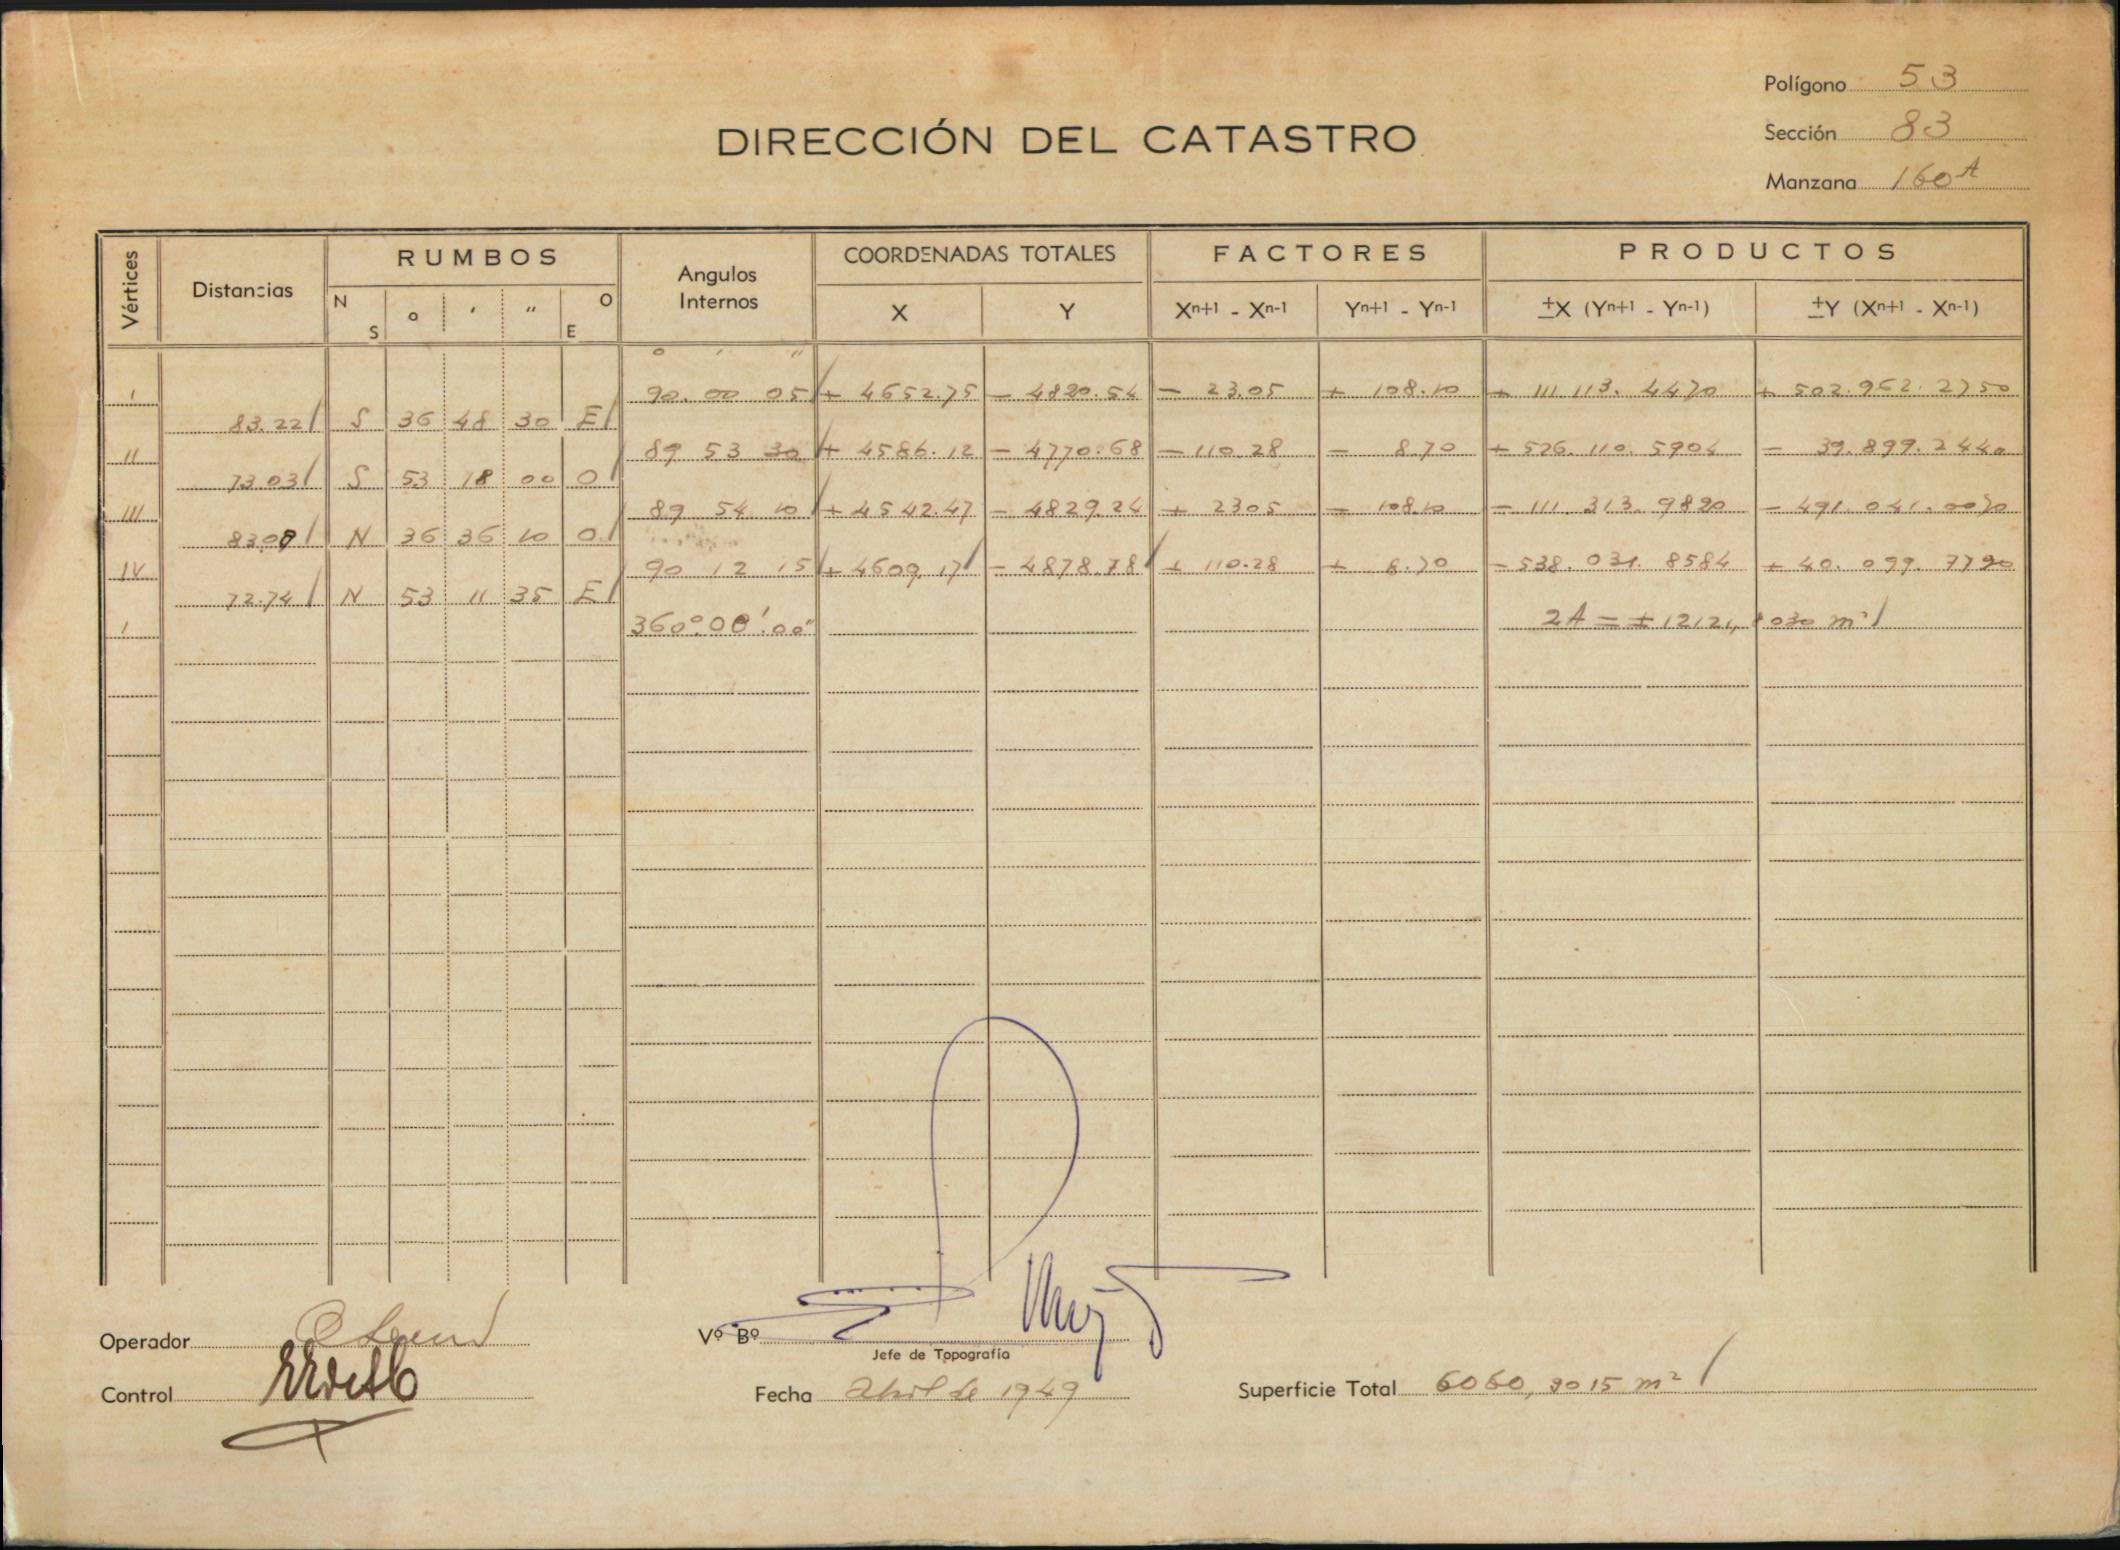 Polígono 53
Sección 83
Manzana 160A
DIRECCIÓN DEL CATASTRO
Vértices Distancias RUMBOS Angulos Internos COORDENADAS TOTALES FACTORES PRODUCTOS
N S o ' " O E X Y Xn+1 - Xn-1 Yn+1 - Yn-1 ±X (Yn+1 - Yn-1) ±Y (Xn+1 - Xn-1)
o ' "
I 90. 00 05 + 4652.75 - 4820.54 - 23.05 + 108.10 + 111.113. 4470 + 502.962. 2750
83.22 S 36 48 30 E
II 89 53 30 + 4586.12 - 4770.68 - 110.28 - 8.70 + 526. 110. 5904 - 39.899. 2440
73.03 S 53 18 00 O
III 89 54 10 + 4542.47 - 4829.24 + 2305 - 108.10 - 111. 313. 9820 - 491. 041. 0070
83.08 N 36 36 10 O
IV 90 12 15 + 4609.17 - 4878.78 + 110.28 + 8.70 - 538. 031. 8584 + 40. 099. 7790
72.74 N 53 11 35 E
I 360°.00'.00" 2A = ± 12121, 8030 m²
Operador
Vº Bº
Jefe de Topografía
Control
Fecha Abril de 1949
Superficie Total 6060,9015 m²